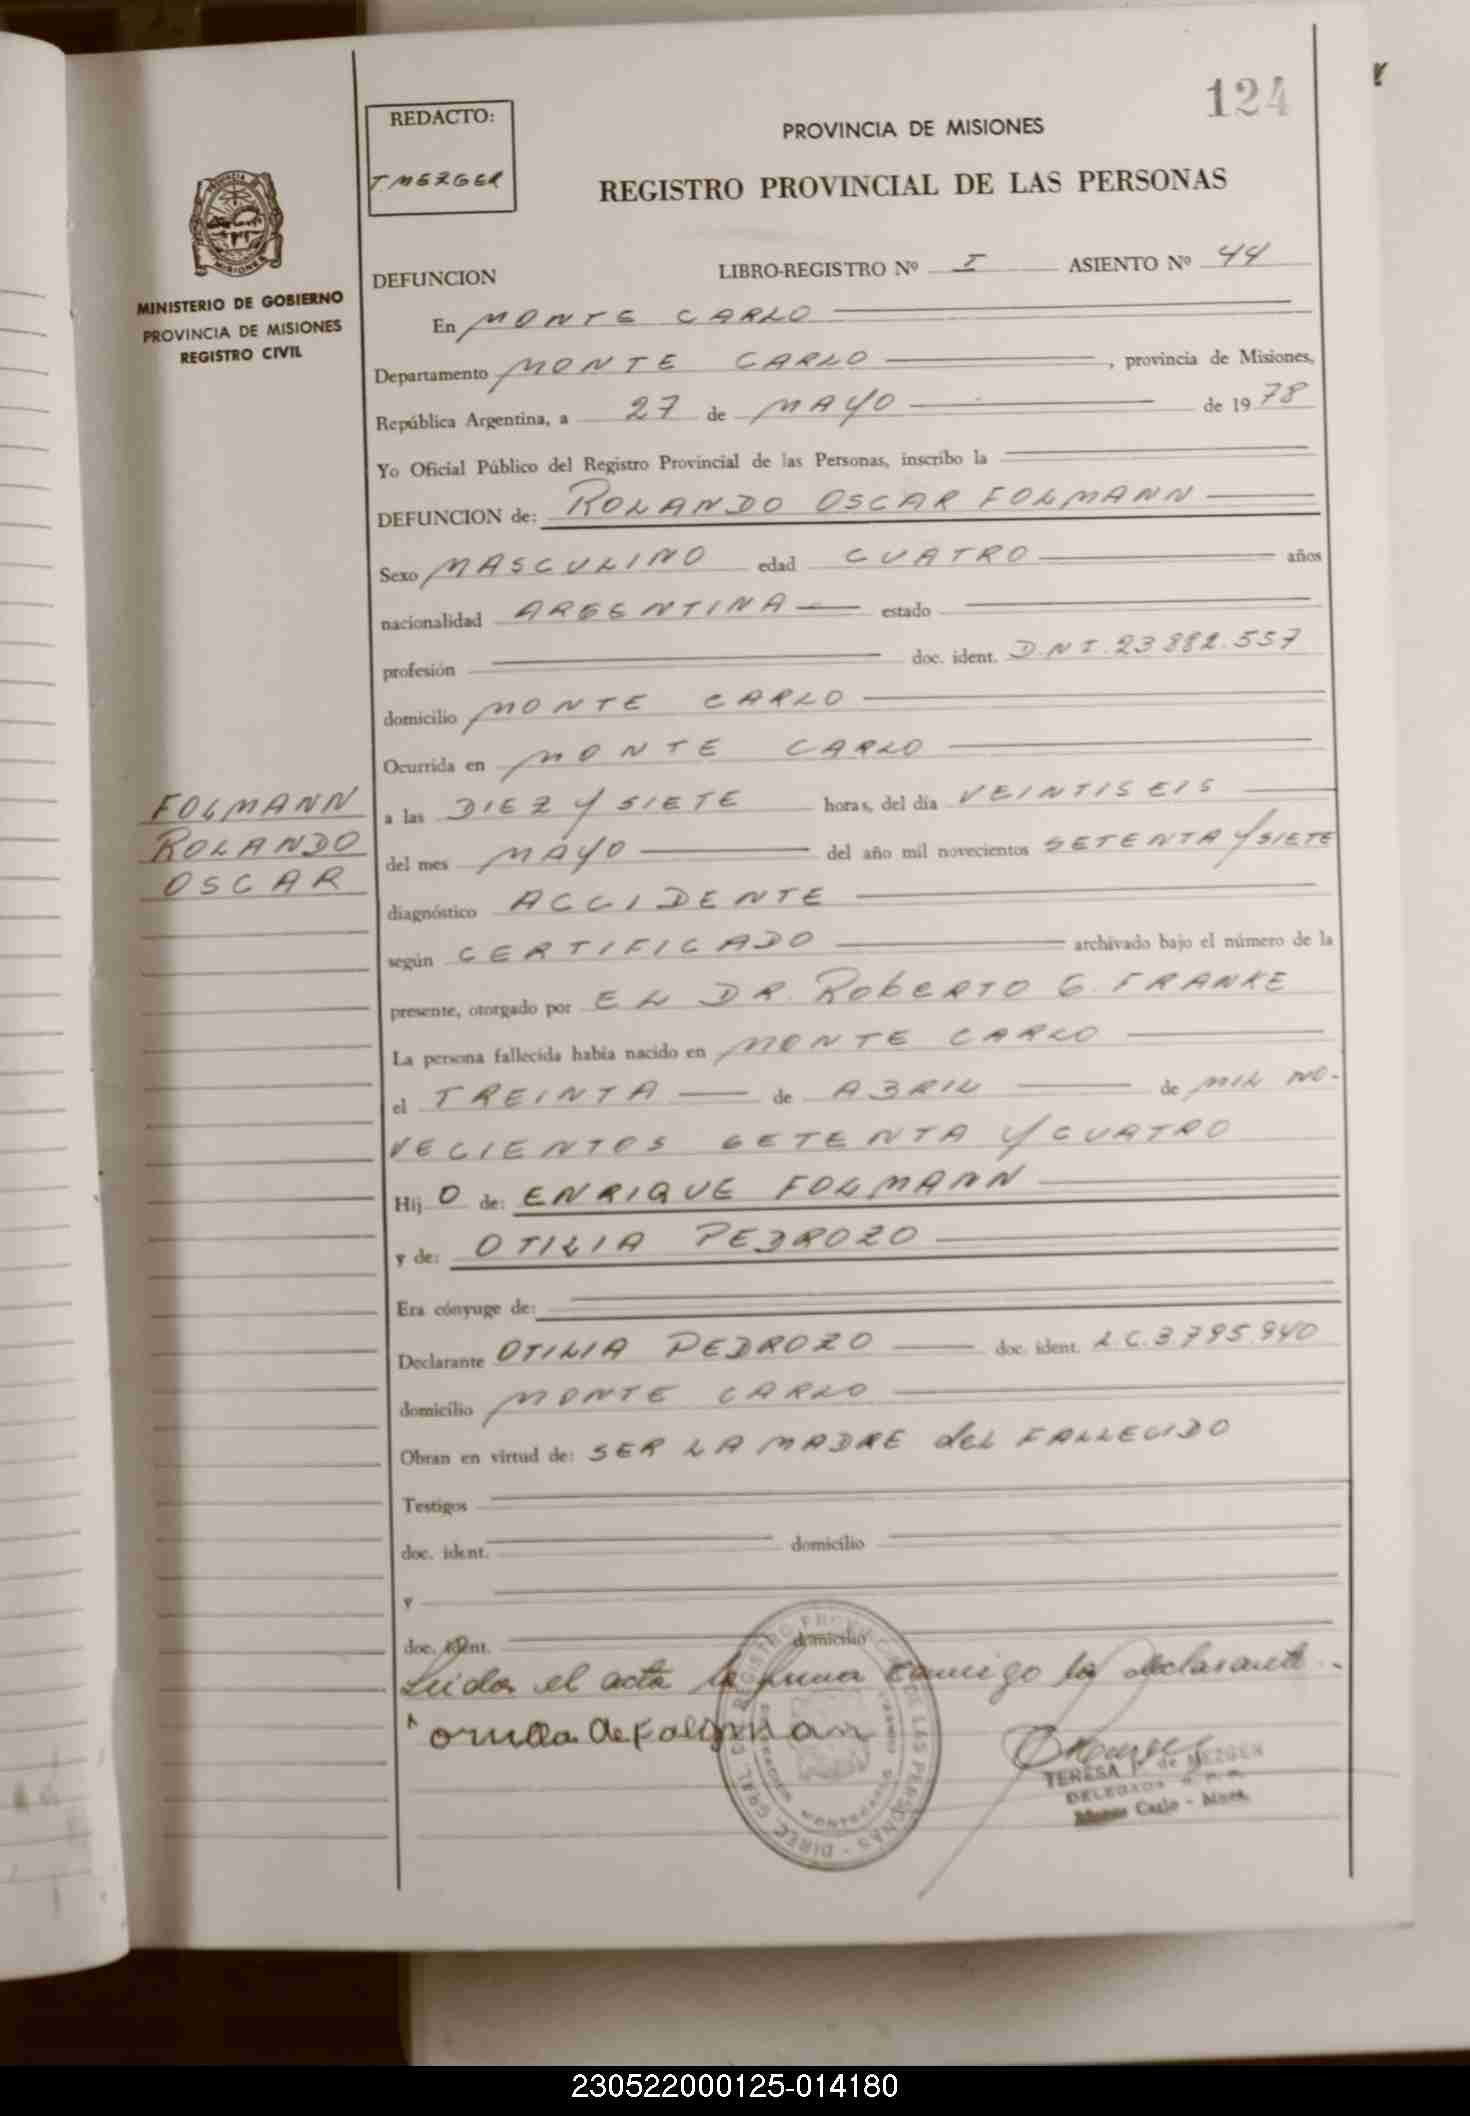 124
REDACTO:
T MEZGER
PROVINCIA DE MISIONES
REGISTRO PROVINCIAL DE LAS PERSONAS
MINISTERIO DE GOBIERNO
PROVINCIA DE MISIONES
REGISTRO CIVIL
DEFUNCION LIBRO-REGISTRO Nº I ASIENTO Nº 44
En MONTE CARLO
Departamento MONTE CARLO , provincia de Misiones,
República Argentina, a 27 de MAYO de 1978
Yo Oficial Público del Registro Provincial de las Personas, inscribo la
DEFUNCION de: ROLANDO OSCAR FOLMANN
Sexo MASCULINO edad CUATRO años
nacionalidad ARGENTINA estado
profesión doc. ident. D.N.I. 23.882.557
domicilio MONTE CARLO
Ocurrida en MONTE CARLO
FOLMANN
ROLANDO
OSCAR
a las DIEZ Y SIETE horas, del día VEINTISEIS
del mes MAYO del año mil novecientos SETENTA Y SIETE
diagnóstico ACCIDENTE
según CERTIFICADO archivado bajo el número de la
presente, otorgado por EL DR. RobERTO G. FRANKE
La persona fallecida había nacido en MONTE CARLO
el TREINTA de ABRIL de MIL NO-
VECIENTOS SETENTA Y CUATRO
Hij O de: ENRIQUE FOLMANN
y de: OTILIA PEDROZO
Era cónyuge de:
Declarante OTILIA PEDROZO doc. ident. L.C. 3.795.940
domicilio MONTE CARLO
Obran en virtud de: SER LA MADRE dEL FALLECIDO
Testigos
doc. ident. domicilio
y
doc. ident. domicilio
Leida el acta la firma conmigo la declarante.
de Folgman
TERESA P. de MEZGER
DELEGADA
Monte Carlo - Mnes.
230522000125-014180